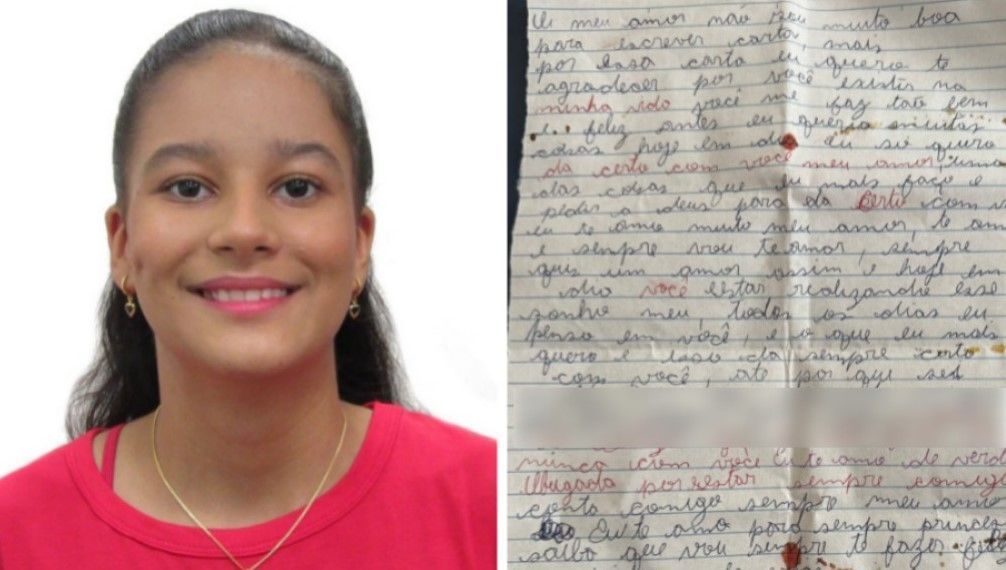 meu amor não sou muito boa
para escrever carta, mais
por essa carta eu queria te
agradecer por você existir na
minha vida você me faz tão bem
e feliz antes eu queria muitas
coisas hoje em dia eu só quero
da certo com você meu amor uma
das coisas que eu mais faço e
pedir a deus para da certo com
eu te amo muito meu amor, te am
e sempre vou te amar, sempre
quis um amor assim e hoje em
dia você estar realizando esse
sonho meu, todos os dias eu
penso em você, e o que eu mais
quero e isso da sempre certo
com você, ate por que sed
nunca com você Eu te amo de verd
Obrigada por estar sempre comigo
conto comigo sempre meu amo
Eu te amo para sempre prince
saiba que vou sempre te fazer